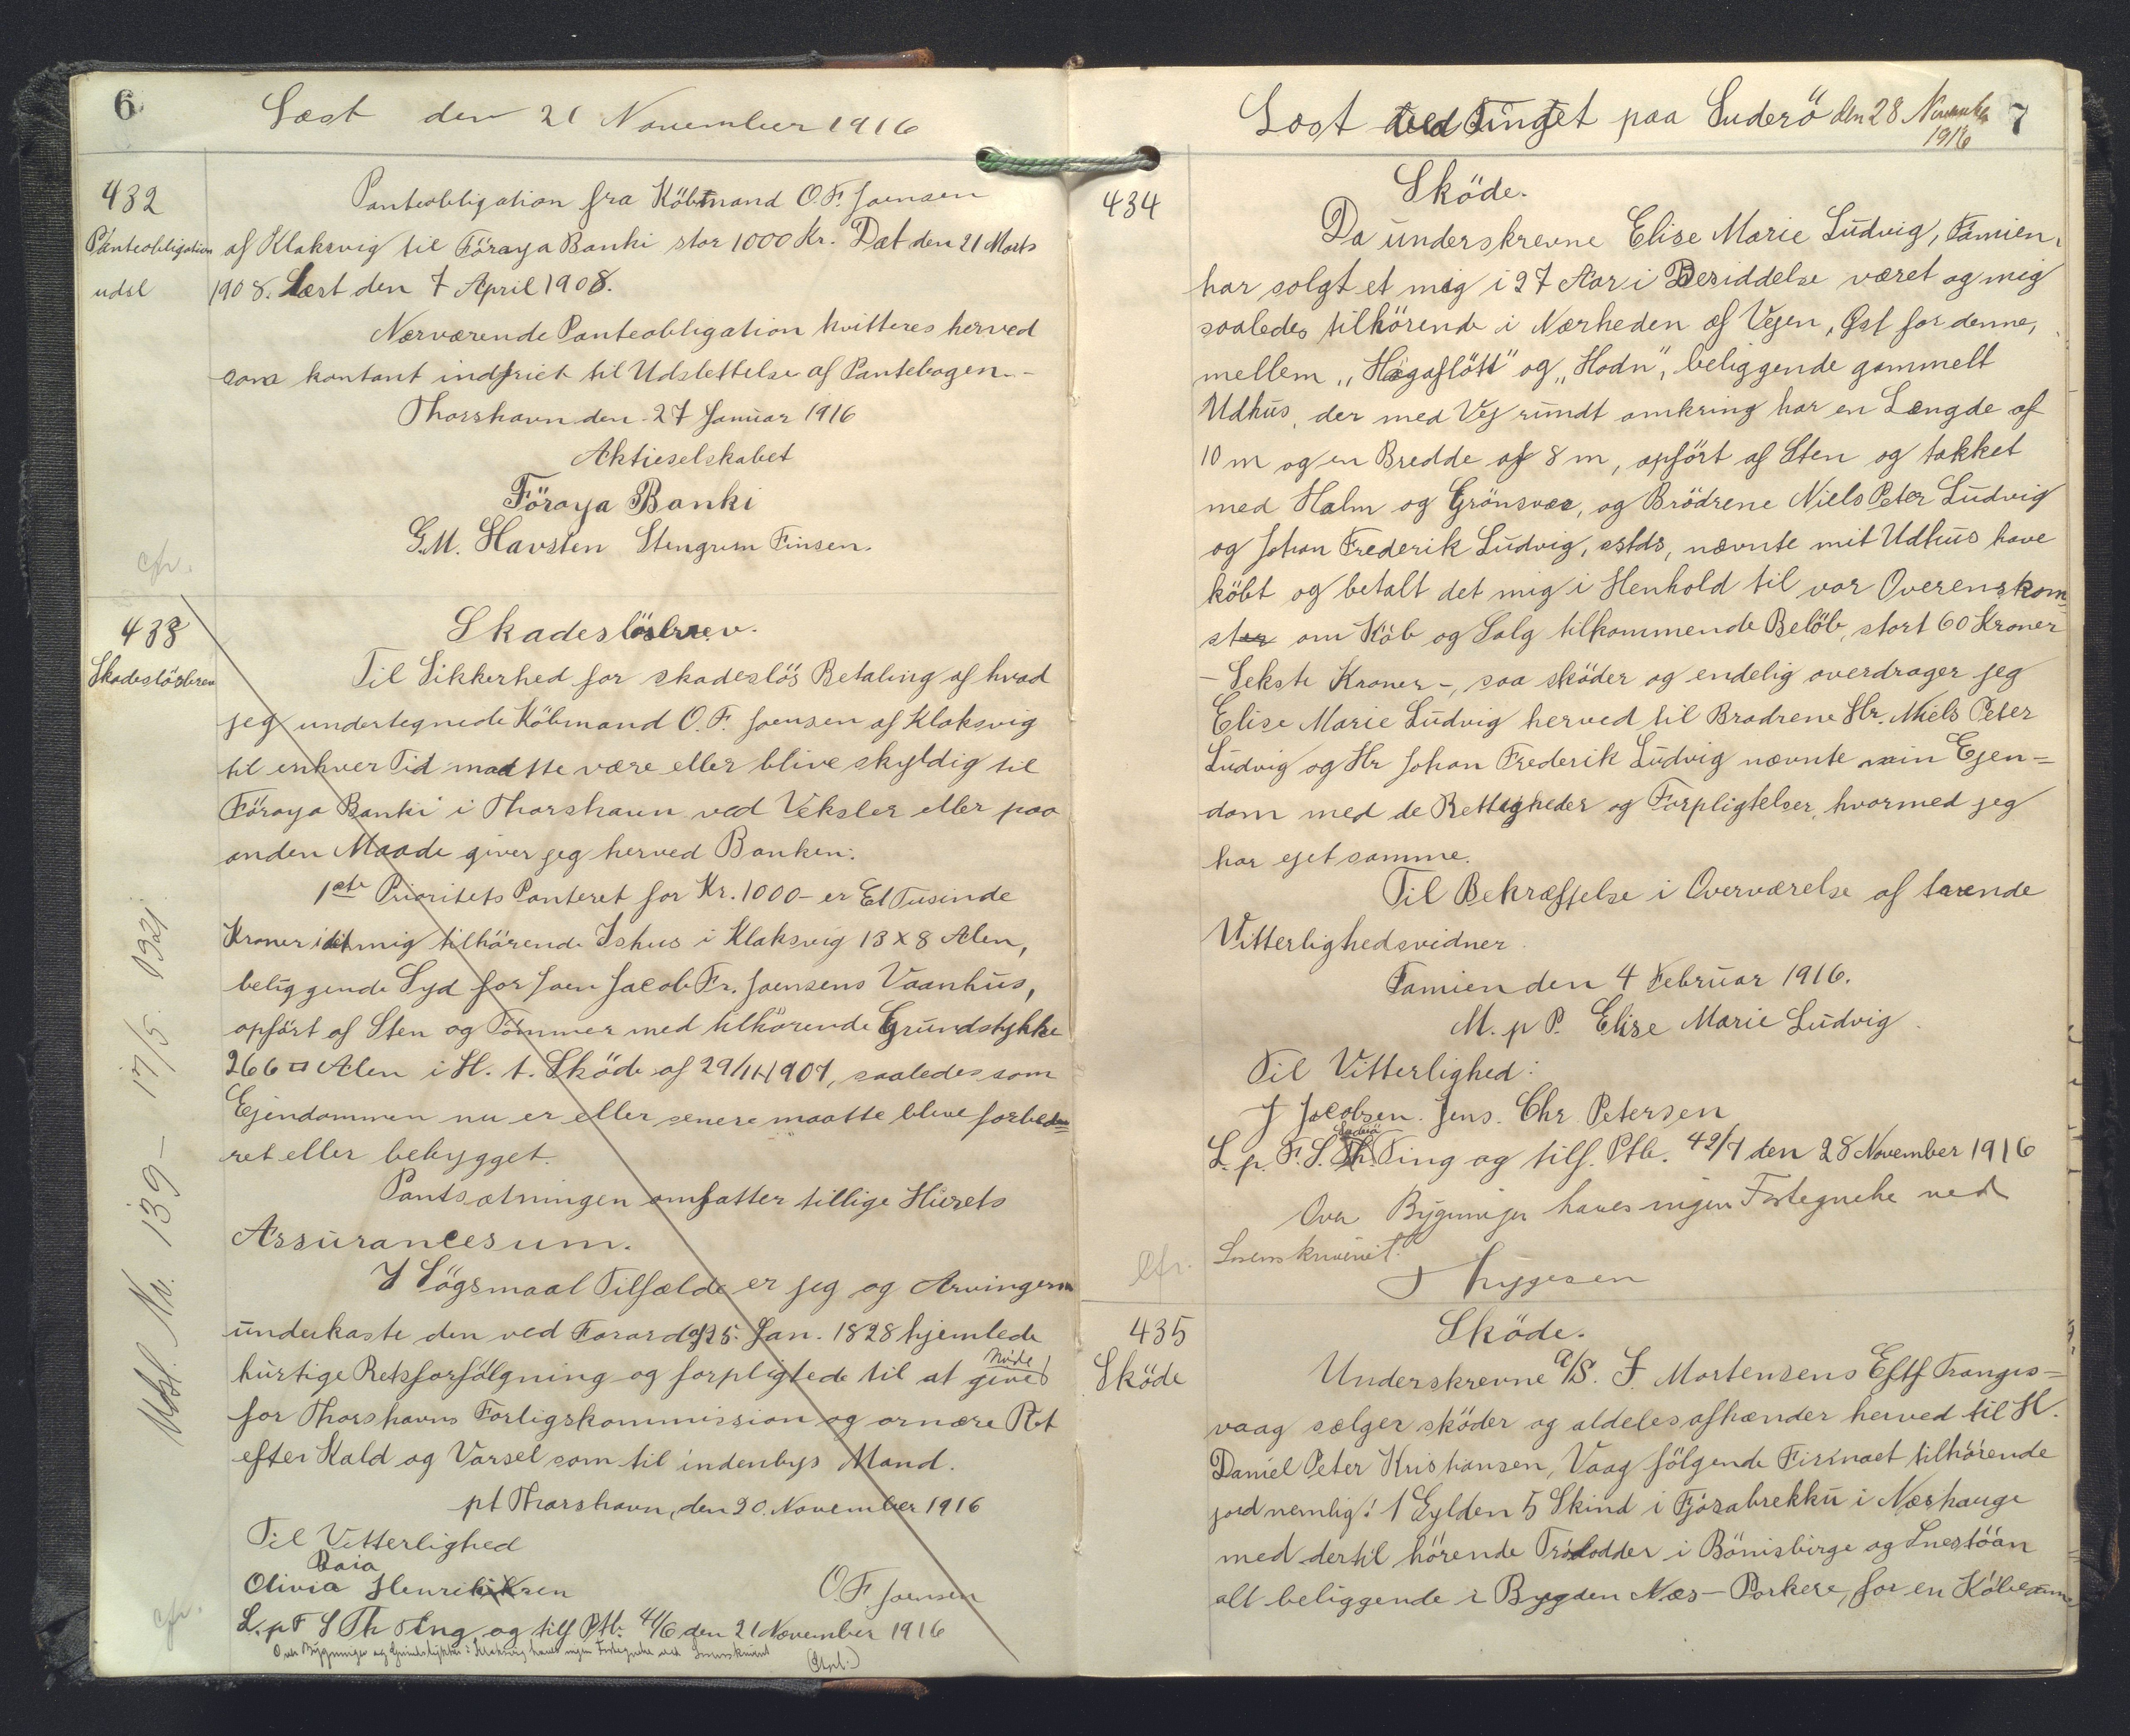 6
Læst den 21 November 1916
432
Panteobligation
udsl
Panteobligation fra Köbmand O. F. Joensen
af Klaksvig til Föroya Banki stor 1000 Kr. Dat den 21 Marts
1908. Læst den 7 April 1908.
Nærværende Panteobligation kvitteres herved
som kontant indfriet til Udslettelse af Pantebogen.-
Thorshavn den 27 Januar 1916
Aktieselskabet
Föroya Banki
G.M. Havsten Stengrim Finsen.
cfr.
433
Skadeslösbrev
Skadeslösbrev.
Til Sikkerhed for skadeslös Betaling af hvad
jeg undertegnede Köbmand O. F. Joensen af Klaksvig
til enhver Tid maatte være eller blive skyldig til
Föroya Banki i Thorshavn ved Veksler eller paa
anden Maade giver jeg herved Banken:
1ste Prioritets Panteret for Kr. 1000- er Et Tusinde
Kroner i det mig tilhörende Ishus i Klaksvig 13 x 8 Alen,
beliggende Syd for Joen Jacob Fr. Joensens Vaanhus,
opfört af Sten og Tömmer med tilhörende Grundstykke
266 □ Alen i H. t. Sköde af 29/11 1907, saaledes som
Ejendommen nu er eller senere maatte blive forbed=
ret eller bebygget.
Pantsætningen omfatter tillige Husets
Assurancesum.
I Sögsmaal Tilfælde er jeg og Arvingerne
underkaste den ved Forord. af 25. Jan. 1828 hjemlede
hurtige Retsforfölgning og forpligtede til at give Möde
for Thorshavns Forligskommission og ornære Ret
efter Kald og Varsel som til indenbys Mand.
pt Thorshavn, den 20. November 1916
Til Vitterlighed
Olivia Henriksen
O. F. Joensen
L. p F S Th Ting og tilf Ptb. 41/6 den 21 November 1916
Over Bygninger og Grundstykker i Klaksvig haves ingen Fortegnelse ved Sorenskriveriet
Udsl. Nr. 139 - 17/5. 1921
cfr.
7
Læst ved Tinget paa Suderö den 28 November
1916
434
Sköde.
Da underskrevne Elise Marie Ludvig, Famien,
har solgt et mig i 27 Aar i Besiddelse været og mig
saaledes tilhörende i Nærheden af Vejen, Øst for denne,
mellem „Høgaflött" og „Hodn", beliggende gammelt
Udhus, der med Vej rundt omkring har en Længde af
10 m og en Bredde af 8 m, opfört af Sten og takket
med Halm og Grönsvær, og Brödrene Niels Peter Ludvig
og Johan Frederik Ludvig, estds, nævnte mit Udhus have
köbt og betalt det mig i Henhold til vor Overenskom=
ster om Köb og Salg tilkommende Belöb, stort 60 Kroner
- Sekste Kroner -, saa sköder og endelig overdrager jeg
Elise Marie Ludvig herved til Brodrene Hr. Niels Peter
Ludvig og Hr Johan Frederik Ludvig nævnte min Ejen=
dom med de Rettigheder og Forpligtelser, hvormed jeg
har ejet samme.
Til Bekræftelse i Overværelse af tvende
Vitterlighedsvidner.
Famien den 4 Februar 1916.
M. p P. Elise Marie Ludvig.
Til Vitterlighed:
J Jacobsen. Jens. Chr Petersen
L. p. F. S. Suderö Ting og tilf. Ptb. 42/7 den 28 November 1916
Over Bygninger haves ingen Fortegnelse ved
Sorenskriveriet.
cfr.
435
Sköde
Sköde.
Underskrevne A/S. J. Mortensens Eftf Trangis=
vaag sælger sköder og aldeles afhænder herved til H.
Daniel Peter Kristiansen, Vaag fölgende Firmaet tilhörende
jord nemlig: 1 Gylden 5 Skind i Fjósabrekku i Næshauge
med dertil hörende Trölodder i Bönisbirge og Snestöán
alt beliggende i Bygden Næs - Porkere, for en Köbesum